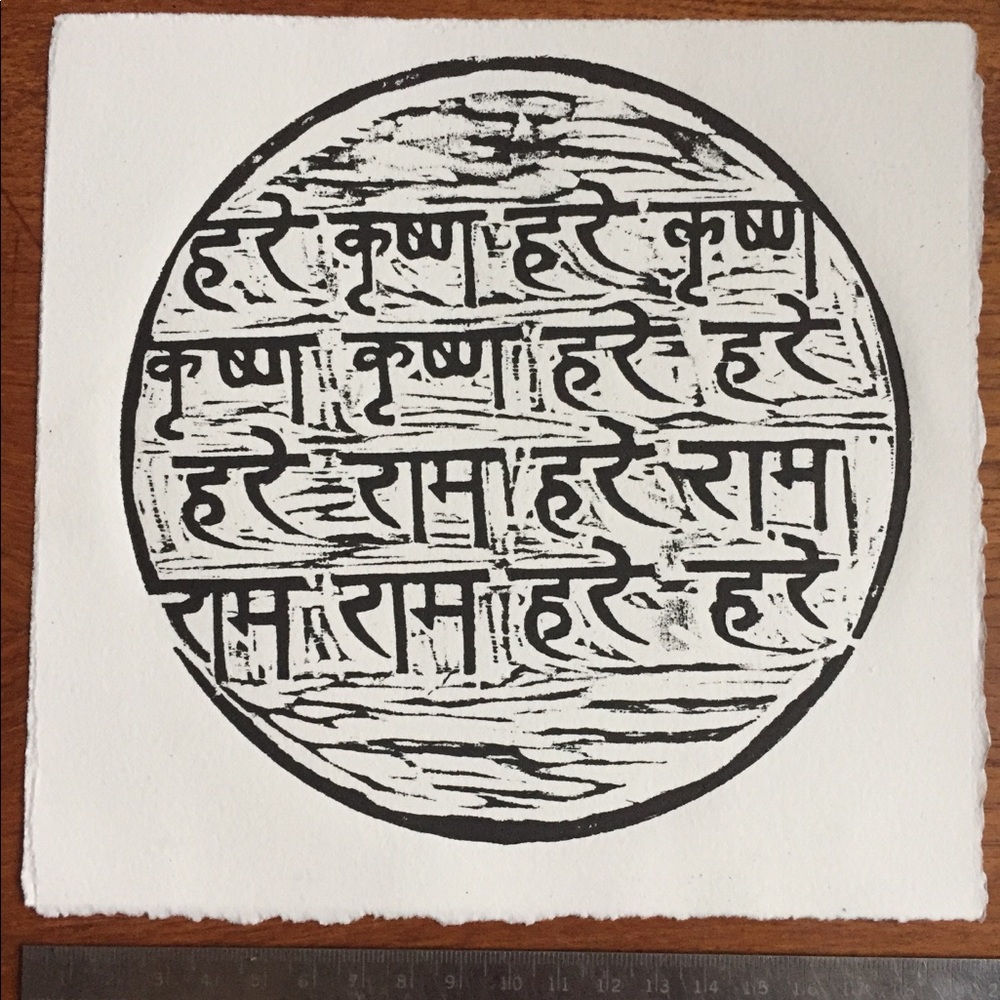 हरे कृष्ण हरे कृष्ण
कृष्ण कृष्ण हरे हरे
हरे राम हरे राम
राम राम हरे हरे
3 4 5 6 7 8 9 10 11 12 13 14 15 16 17 18